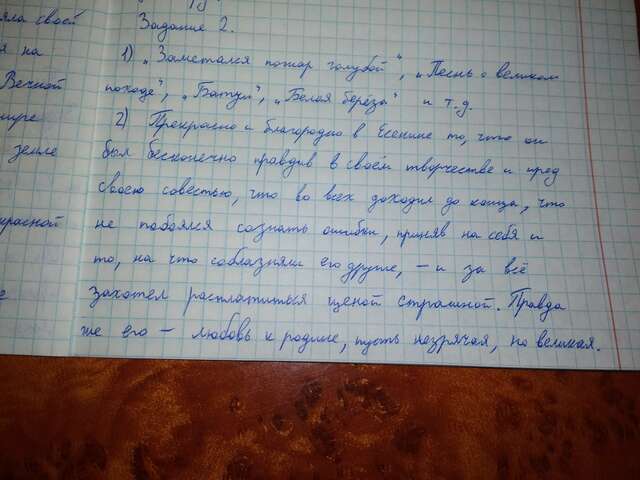 яла своей
я на
Вечной
мире
земле
красной
Задание 2.
1) „Заметался пожар голубой", „Песнь о великом
походе", „Батум", „Белая берёза" и т.д.
2) Прекрасно и благородно в Есенине то, что он
был бесконечно правдив в своём творчестве и пред
своею совестью, что во всех доходил до конца, что
не побоялся сознать ошибки, приняв на себя и
то, на что соблазняли его другие, – и за всё
захотел расплатиться ценой страшной. Правда
же его – любовь к родине, пусть незрячая, но великая.